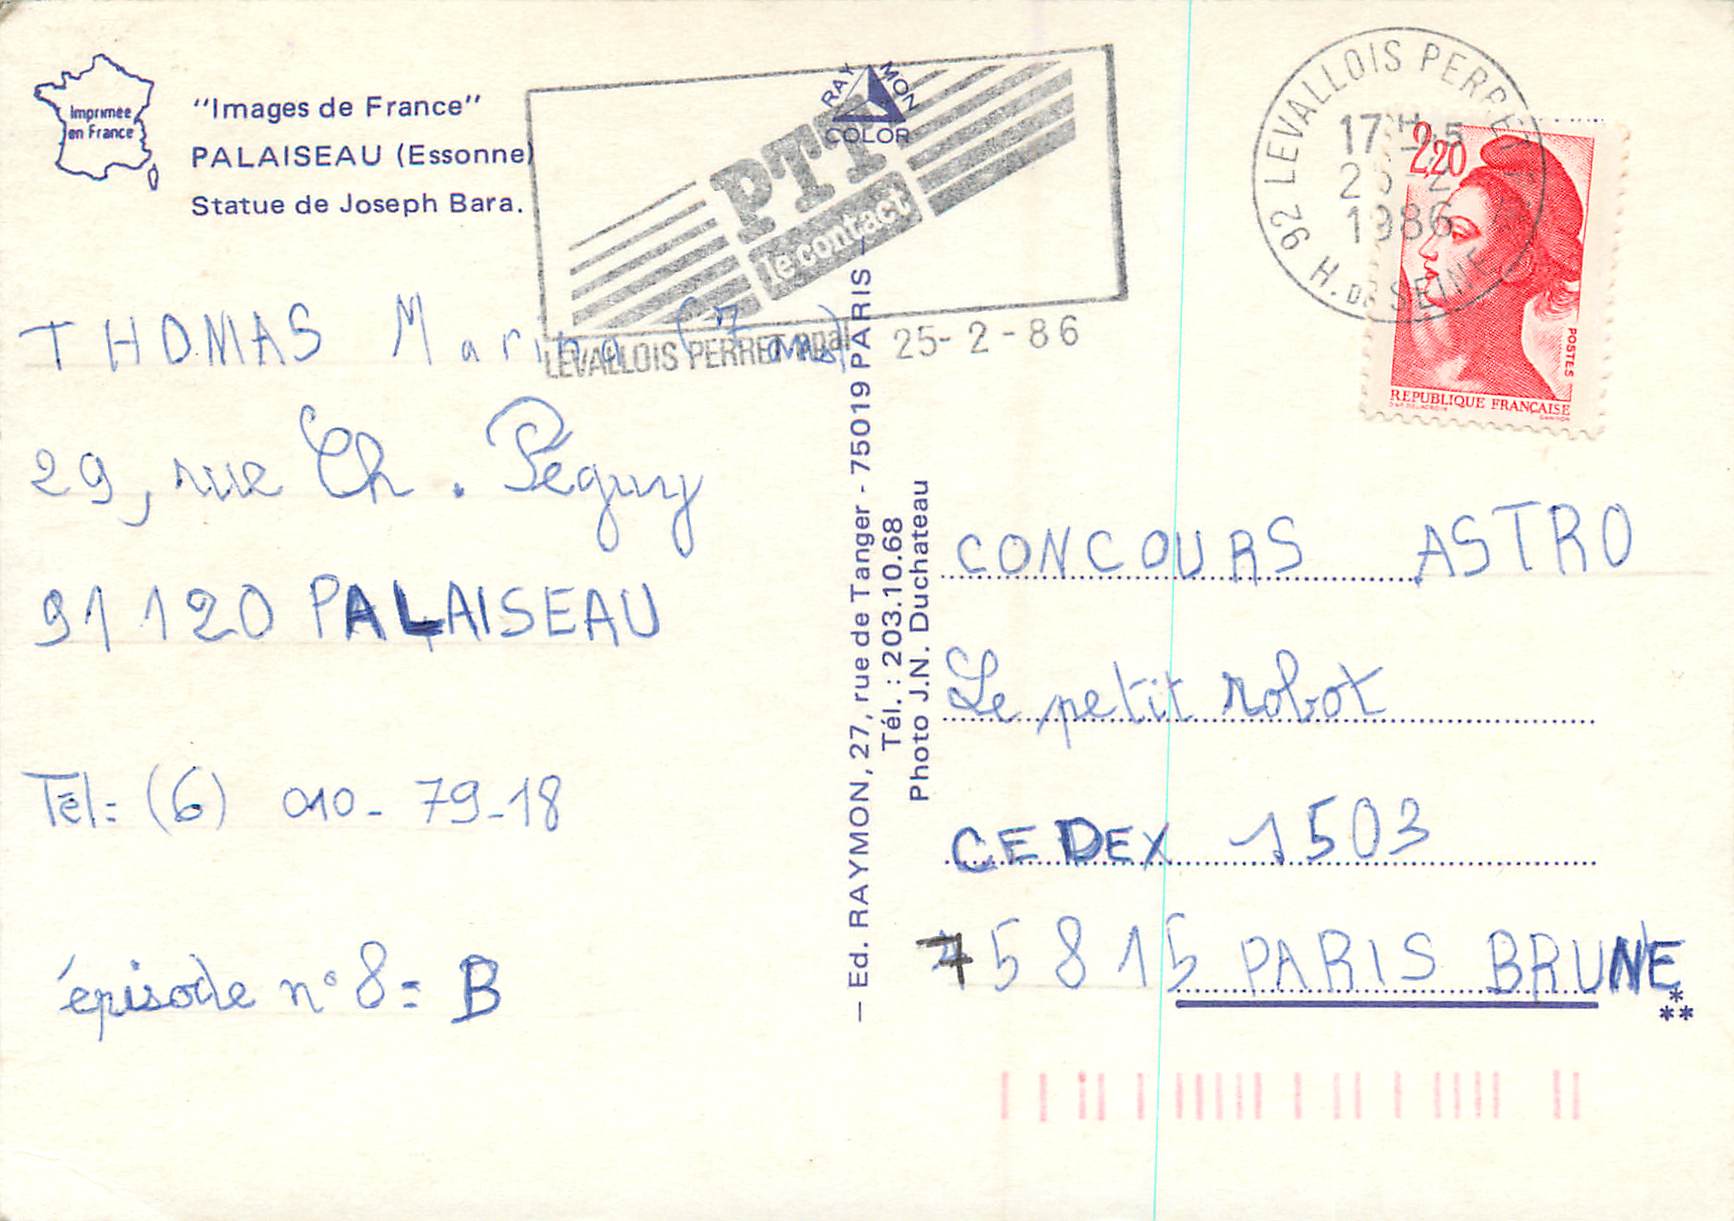 Imprimée
en France
"Images de France"
PALAISEAU (Essonne)
Statue de Joseph Bara.
RAY MON
COLOR
PTT
le contact
LEVALLOIS PERRET PPAL 25-2-86
92 LEVALLOIS PERRET
17H15
1986
H. DE SEINE
2,20
POSTES
REPUBLIQUE FRANÇAISE
THOMAS Marina (7 ans)
29, rue Ch. Péguy
91120 PALAISEAU
Tél: (6) 010-79-18
épisode n° 8 = B
— Ed. RAYMON, 27, rue de Tanger - 75019 PARIS —
Tél. : 203.10.68
Photo J.N. Duchateau
CONCOURS ASTRO
Le petit robot
CEDEX 1503
75815 PARIS BRUNE